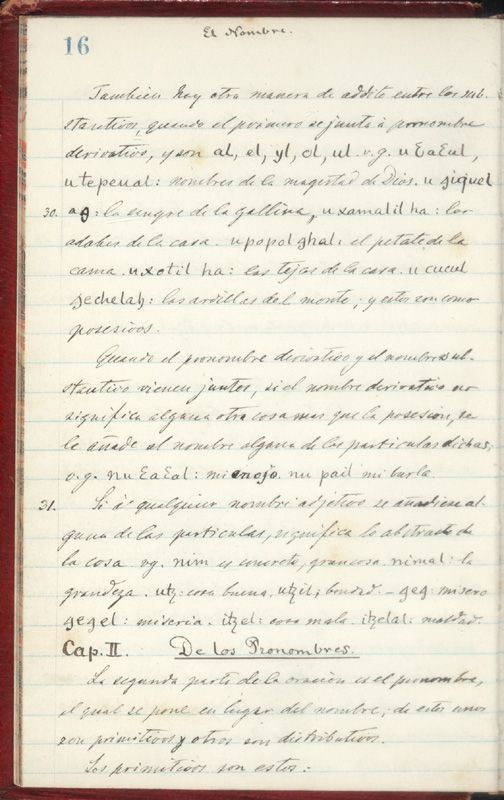 16
El Nombre.
Tambien hay otra manera de addito entre los sub-
stantivos, quando el primero se junta á pronombre
derivativo, y son al, el, yl, ol, ul. v.g. u Ɛa Ɛal,
u tepeual: nombres de la magestad de Dios. u quiquel
30. : la sangre de la gallina, u xamalil ha: los
adabes de la casa. u popol ghal: el petate de la
cama. u xotil ha: las tejas de la casa. u cucul
gechelah: las ardillas del monte; y estos son como
posesivos.
Quando el pronombre derivativo y el nombre sub-
stantivo vienen juntos, si el nombre derivativo no
significa alguna otra cosa mas que la posesion, se
le añade al nombre alguna de las particulas dichas;
v.g. nu Ɛa Ɛal: mi enojo. nu pail mi burla
31. Si á qualquier nombre adjetivo se añadiese al-
guna de las particulas, significa lo abstracto de
la cosa. vg. nim es concreto, gran cosa. nimal: la
grandeza. utz: cosa buena, utzil; bondad. - geg: misero
gegel: miseria. itzel: cosa mala. itzelal: maldad.
Cap. II. De los Pronombres.
La segunda parte de la oracion es el pronombre,
el qual se pone en lugar del nombre; de estos unos
son primitivos y otros son distributivos.
Los primitivos son estos: